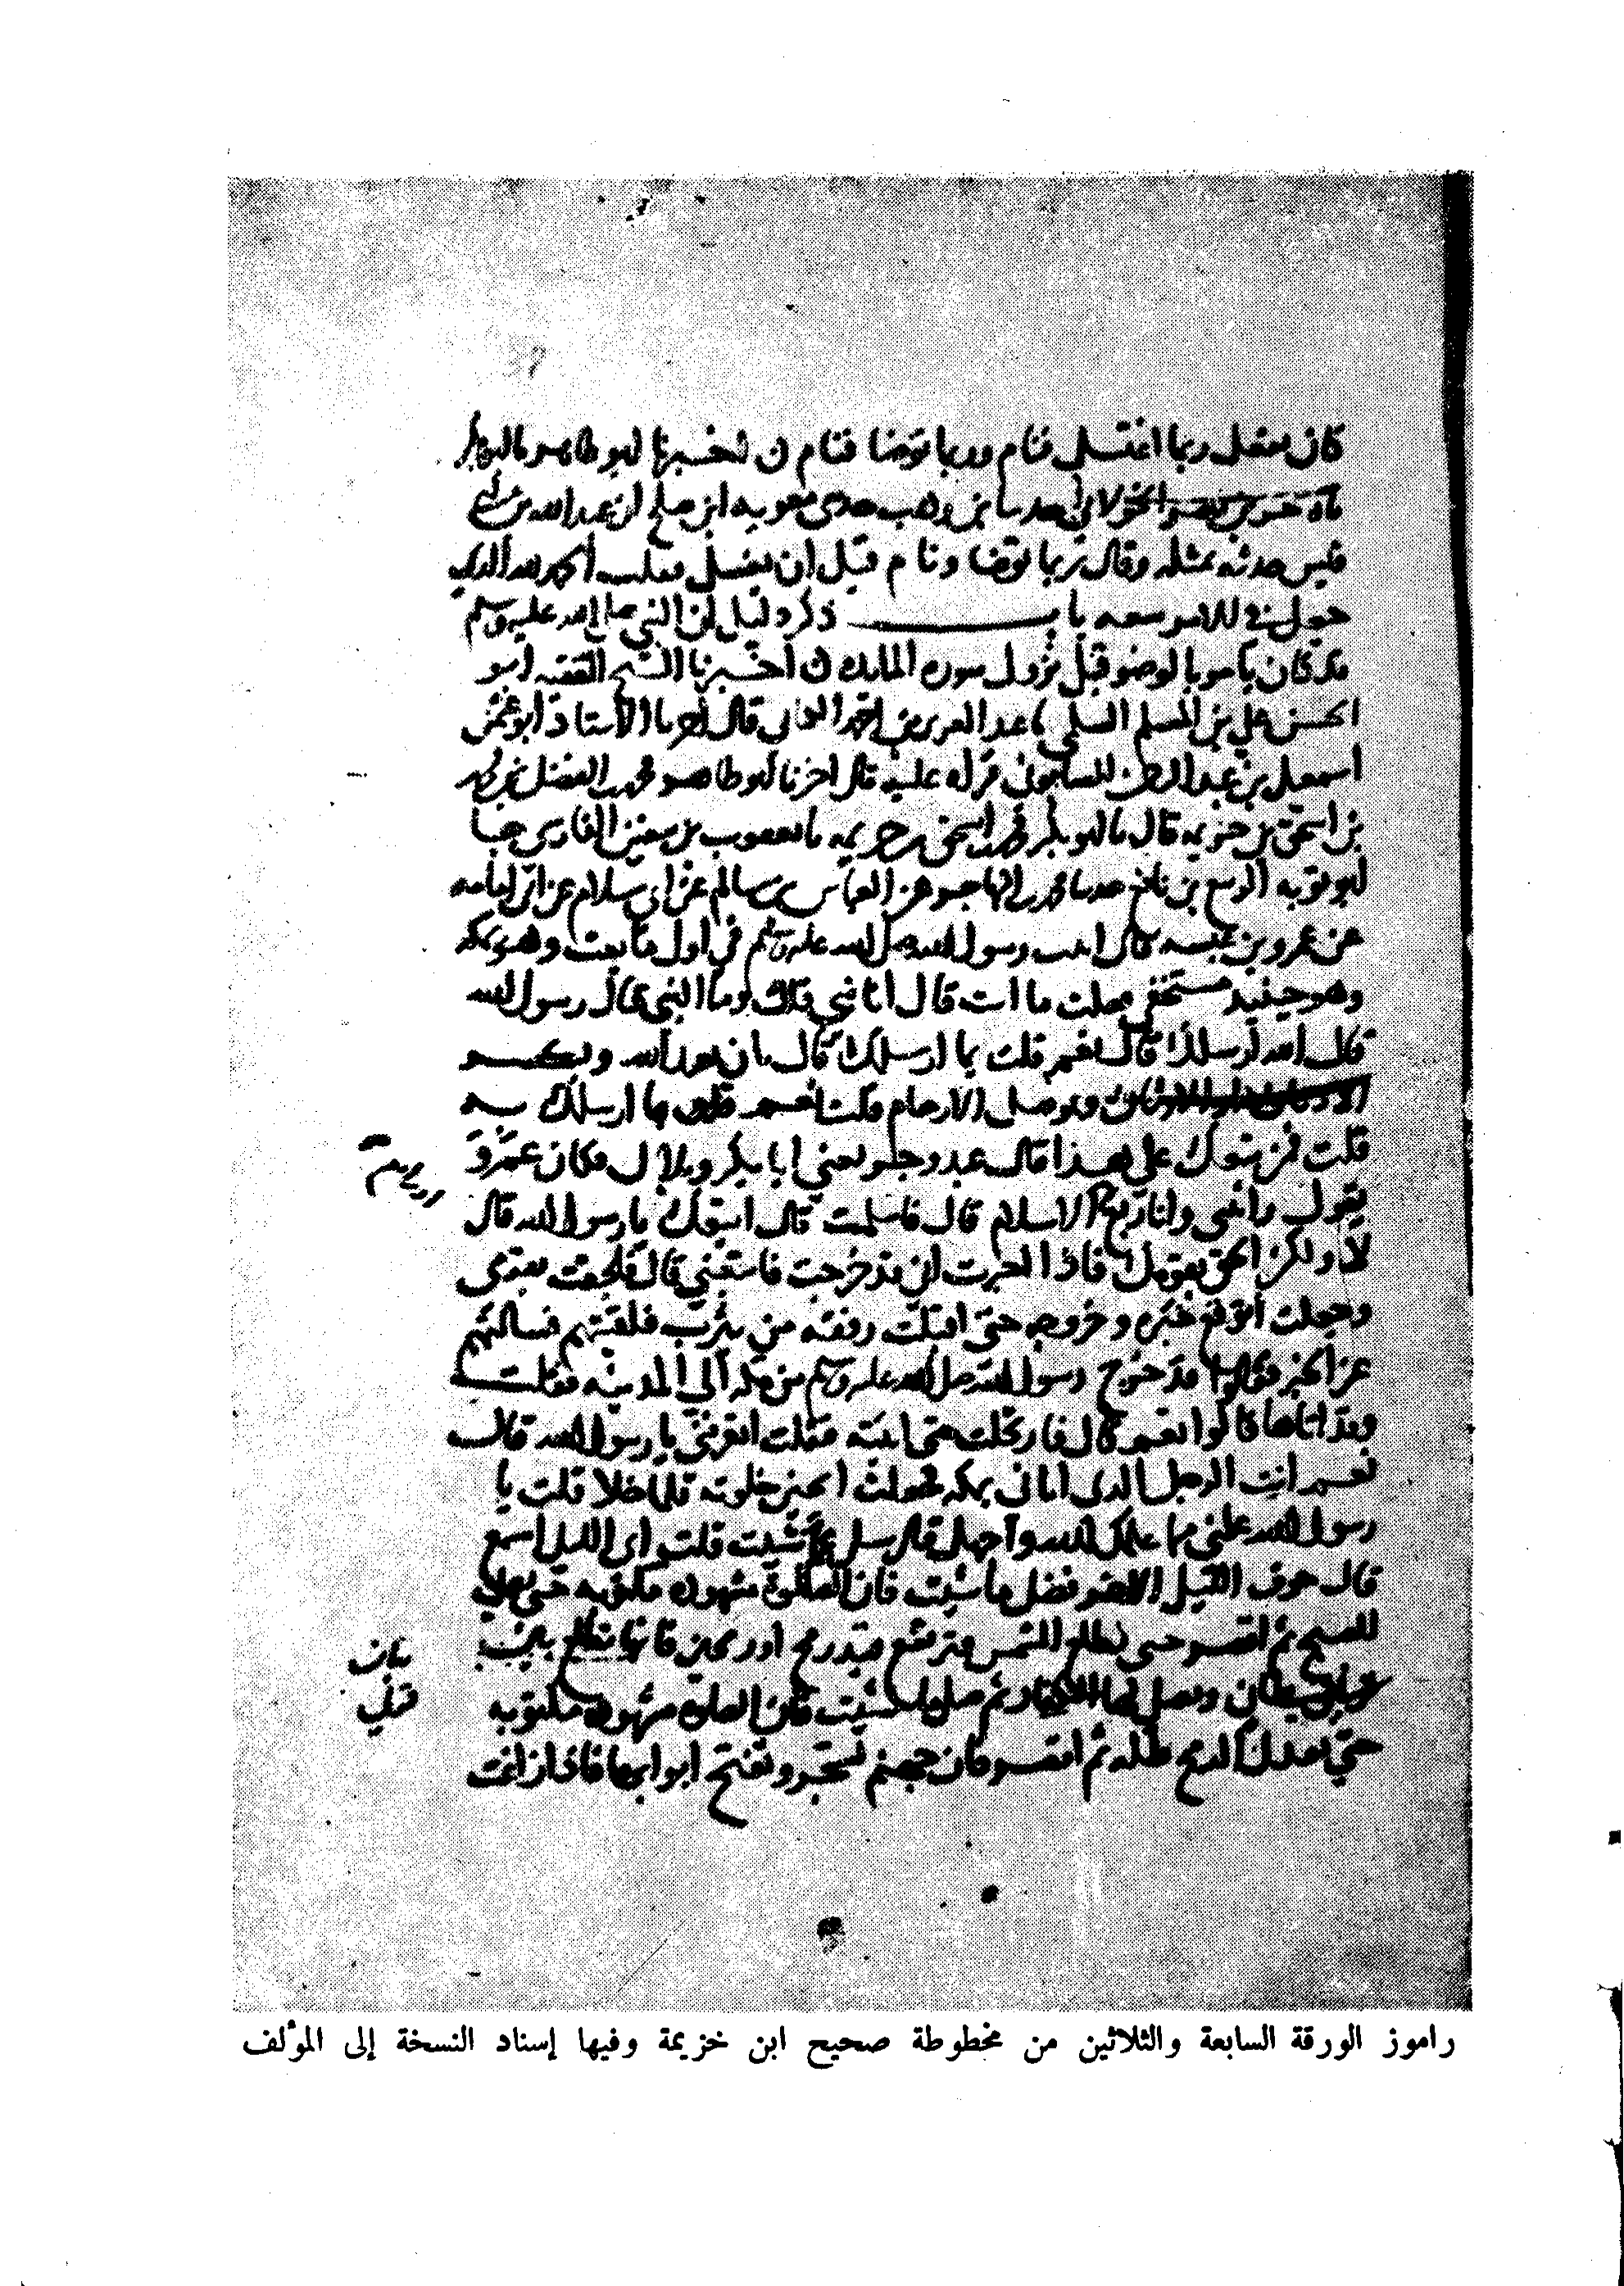 كان يفعل ربما اغتسل فنام وربما توضا فنام ن اخبرنا ابو طاهر نا ابو بكر
نا نصر بن بحر الخولاني حدثنا ابن وهب حدثني معويه ابن صلح ان عبد الله بن ابي
قيس حدثه بمثله وقال ربما توضا ونام قبل ان يغتسل فقلت الحمد لله الذي
جعل في الامر سعه باب ذكر دليل ان النبي صلى الله عليه وسلم
قد كان يأمر بالوضو قبل نزول سوره المائده ن اخبرنا الشيخ الفقيه ابو
الحسن علي بن المسلم السلمي نا عبد العزيز بن احمد قال اخبرنا الأستاذ ابو عثمن
اسمعيل بن عبد الرحمن الصابوني قراه عليه قال اخبرنا ابو طاهر محمد بن الفضل بن محمد
بن اسحق بن خزيمه قال نا ابو بكر محمد بن اسحق بن خزيمه نا يعقوب بن سفين الفارسي حدثنا
ابو توبه الربيع بن نافع حدثنا محمد بن المهاجر عن العباس بن سالم عن ابي سلام عن ابي امامه
عن عمرو بن عبسه قال اتيت رسول الله صلى الله عليه وسلم في اول ما بعث وهو بمكه
وهو حينيذ مستخفي فقلت ما انت قال أنا نبي قلت وما النبي قال رسول الله
قال الله ارسلك قال نعم قلت بما ارسلك قال بان نعبد الله ونكسر
الاوثان ونوصل الارحام قلت نعم بما ارسلك به
قلت فمن تبعك على هذا قال عبد وحر يعني ابا بكر وبلال فكان عمرو
يقول رأيتني وانا ربع الاسلام قال فاسلمت قال اتبعك يا رسول الله قال
لا ولكن الحق بقومك فاذا اخبرت اني قد خرجت فاتبعني قال فلحقت بقومي
وجعلت اتوقع خبره وخروجه حتى اقبلت رفقه من يثرب فلقيتهم فسالتهم
عن الخبر فقالوا قد خرج رسول الله صلى الله عليه وسلم من مكه الي المدينه فقلت
وقد اتاها قالوا نعم قال فارتحلت حتى اتيته فقلت اتعرفني يا رسول الله قال
نعم انت الرجل الذي اتاني بمكه فجعلت اتحين خلوته فلما خلا قلت يا
رسول الله علمني مما علمك الله واجهل قال سل عما شيت قلت اي الليل اسمع
قال جوف الليل الاخر فصل ما شيت فان الصلوة مشهوده مكتوبه حتى تصلي
الصبح ثم اقصر حتى تطلع الشمس فترتفع قيد رمح او رمحين فانها تطلع بين
قرني شيطان وتصلي لها الكفار ثم صل ما شيت فان الصلاه مشهوده مكتوبه
حتى يعدل الرمح ظله ثم اقصر فان جهنم تسجر وتفتح ابوابها فاذا زاغت
راموز الورقة السابعة والثلاثين من مخطوطة صحيح ابن خزيمة وفيها إسناد النسخة إلى المؤلف